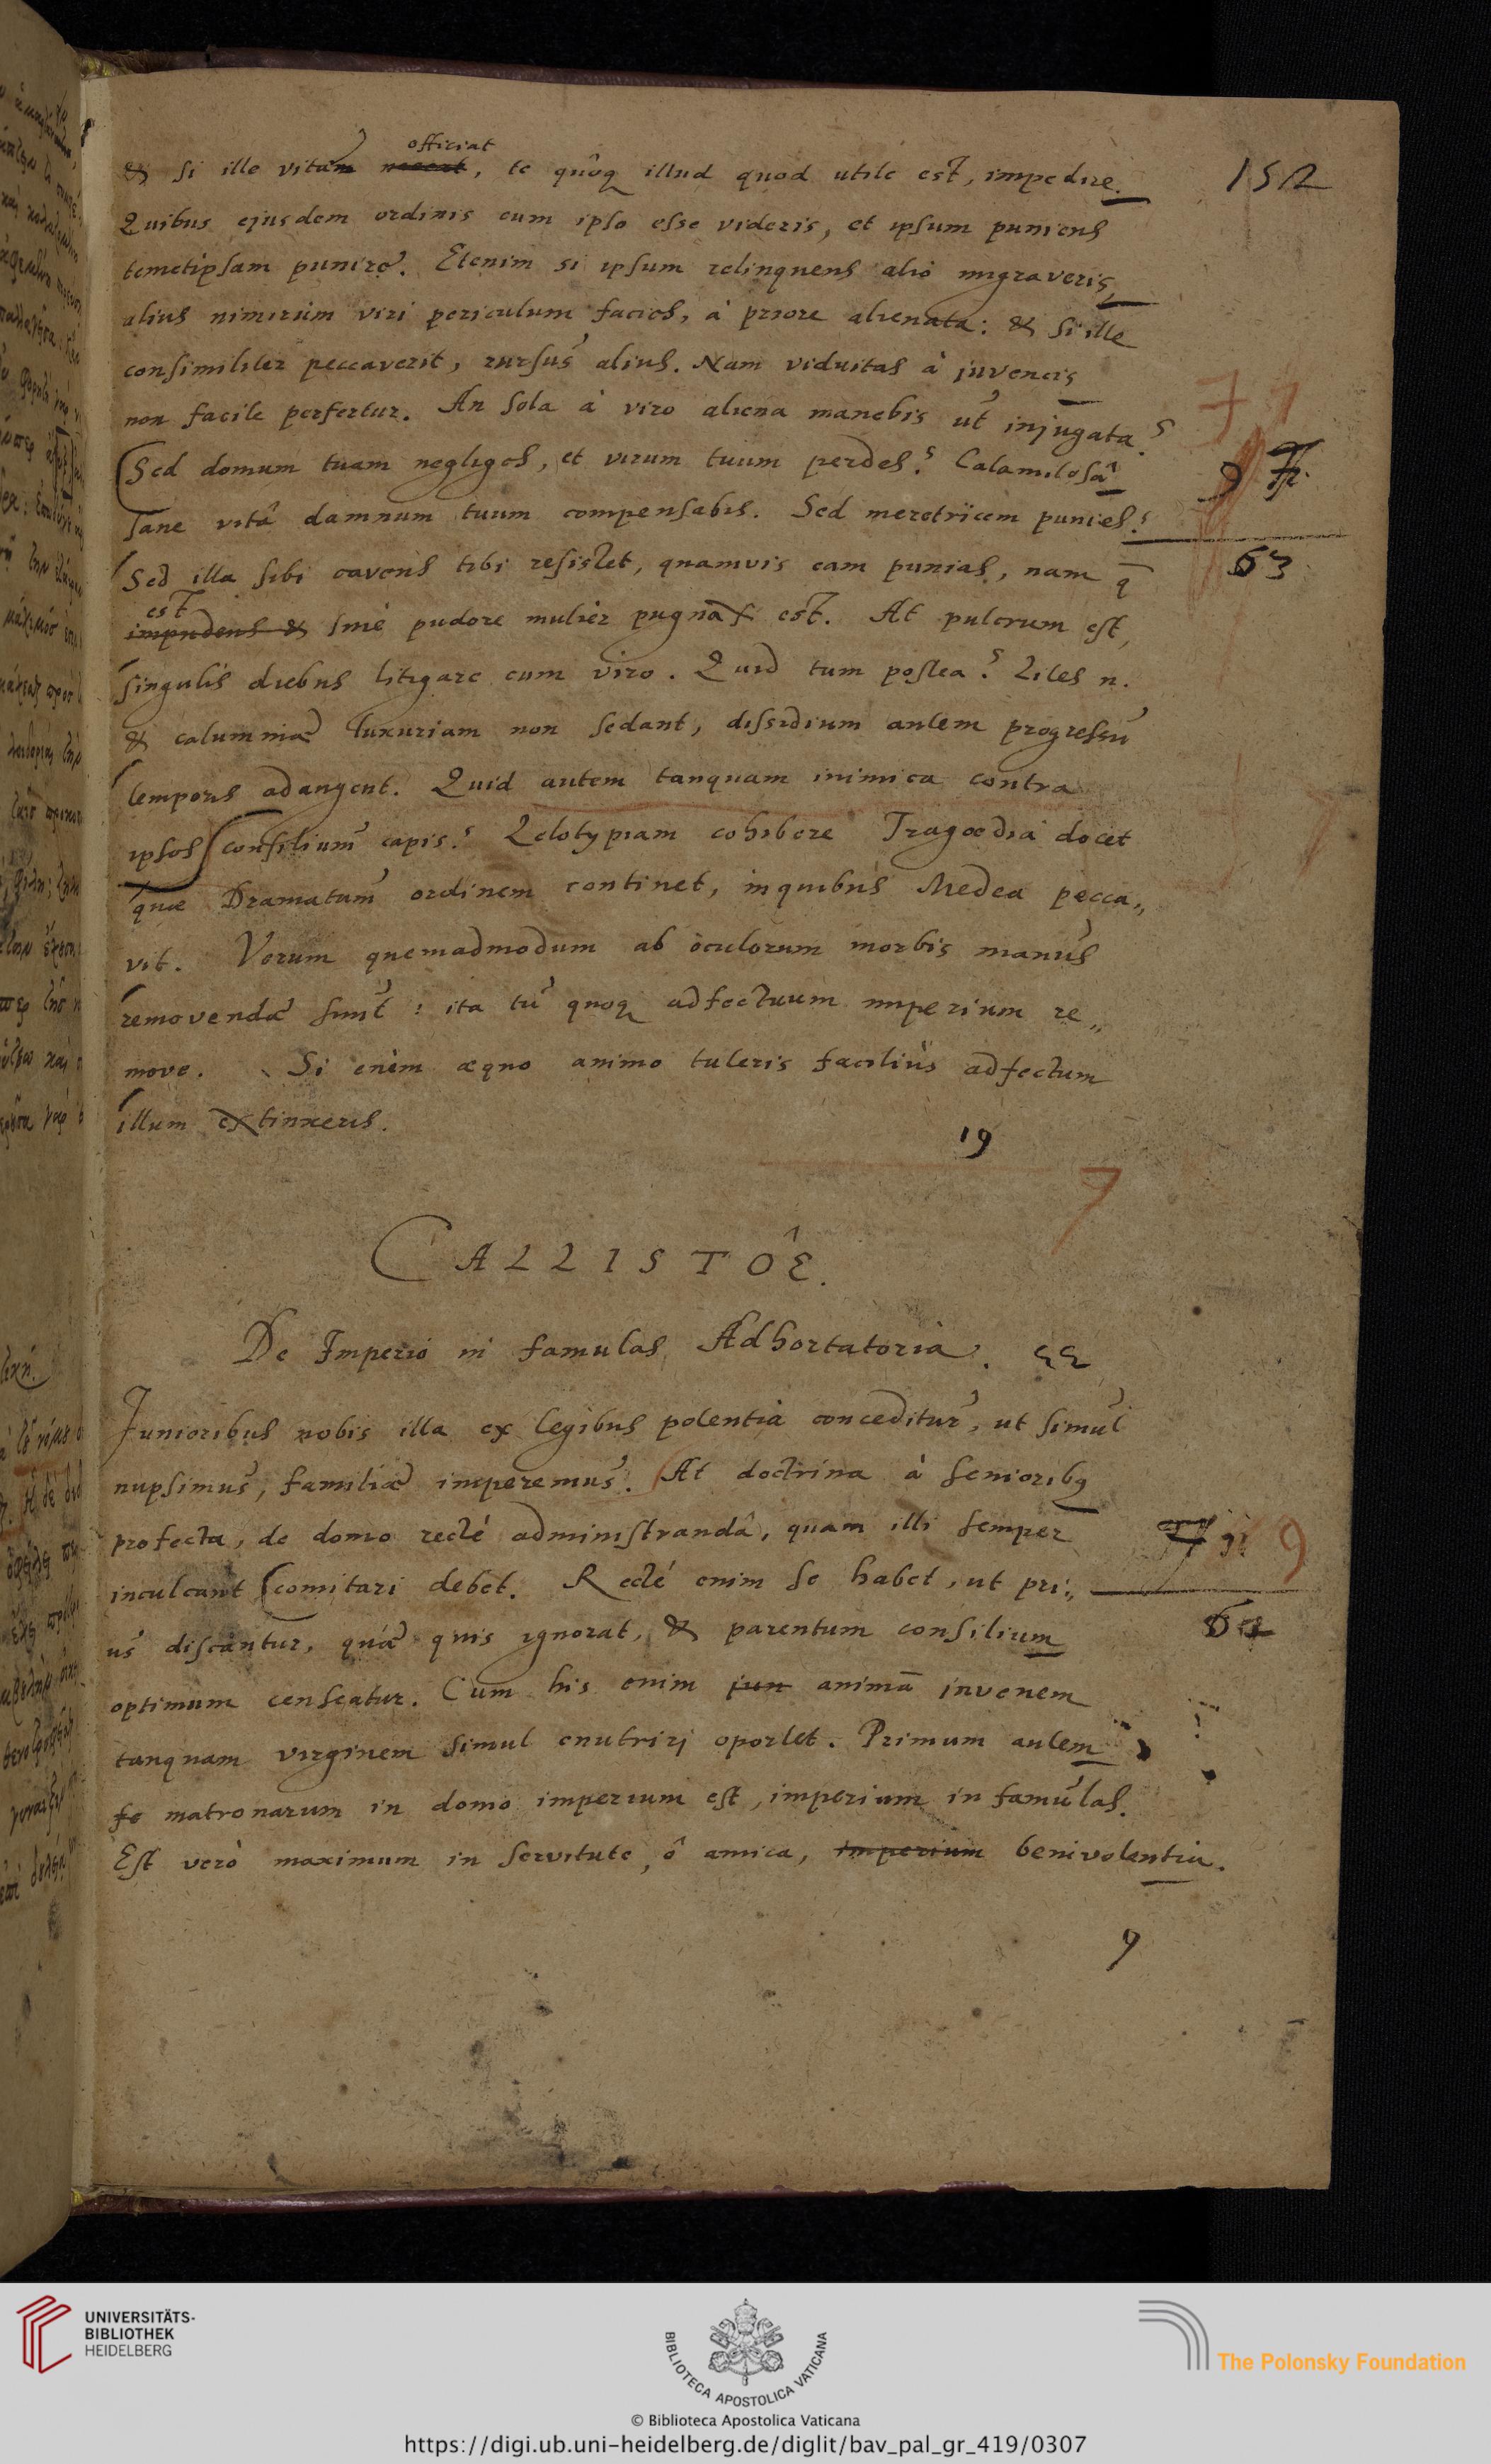 152
officiat
& si ille vitam noceat, te quôq illud quod utile est, impedire.
Quibus ejusdem ordinis cum ipso esse videris, et ipsum puniens
temetipsam punire. Etenim si ipsum relinquens aliò migraveris,
alius nimirùm viri periculum facies, à priore alienata: & si ille
consimiliter peccaverit, rursus alius. Nam viduitas à juvencis
non facile perfertur. An sola à viro aliena manebis ut injugata?
Sed domum tuam negliges, et virum tuum perdes? Calamitosâ
sane vitâ damnum tuum compensabis. Sed meretricem punies?
63
Sed illa sibi cavens tibi resistet, quamvis eam punias, nam q̄
est
impudens & sine pudore mulier pugnax est. At pulcrum est,
singulis diebus litigare cum viro. Quid tum postea? Lites n.
& calumniæ luxuriam non sedant, dissidium autem progressu
temporis adangent. Quid autem tanquam inimica contra
ipsos consilium capis? Zelotypiam cohibere Tragœdia docet
quæ Dramatum ordinem continet, in quibus Medea pecca„
vit. Verum quemadmodum ab oculorum morbis manus
removendæ sunt: ita tu quoq adfectuum imperium re„
move. Si enim æquo animo tuleris faciliùs adfectum
illum extinxeris.
19
CALLISTÔE.
De Imperio in famulas, Adhortatoria.
Junioribus nobis illa ex legibus potentia conceditur, ut simul
nupsimus, familiæ imperemus. At doctrina à seniorib9
profecta, de domo recté administrandâ, quam illi semper
inculcant comitari debet. Recté enim se habet, ut pri„
us discantur, quæ quis ignorat, & parentum consilium
optimum censeatur. Cum his enim jun animā juvenem
tanquam virginem simul enutriri oportet. Primum autem
fe matronarum in domo imperium est, imperium in famulas.
Est verò maximum in servitute, ô amica, imperium benivolentia.
9
UNIVERSITÄTS-
BIBLIOTHEK
HEIDELBERG
BIBLIOTECA APOSTOLICA VATICANA
The Polonsky Foundation
© Biblioteca Apostolica Vaticana
https://digi.ub.uni-heidelberg.de/diglit/bav_pal_gr_419/0307